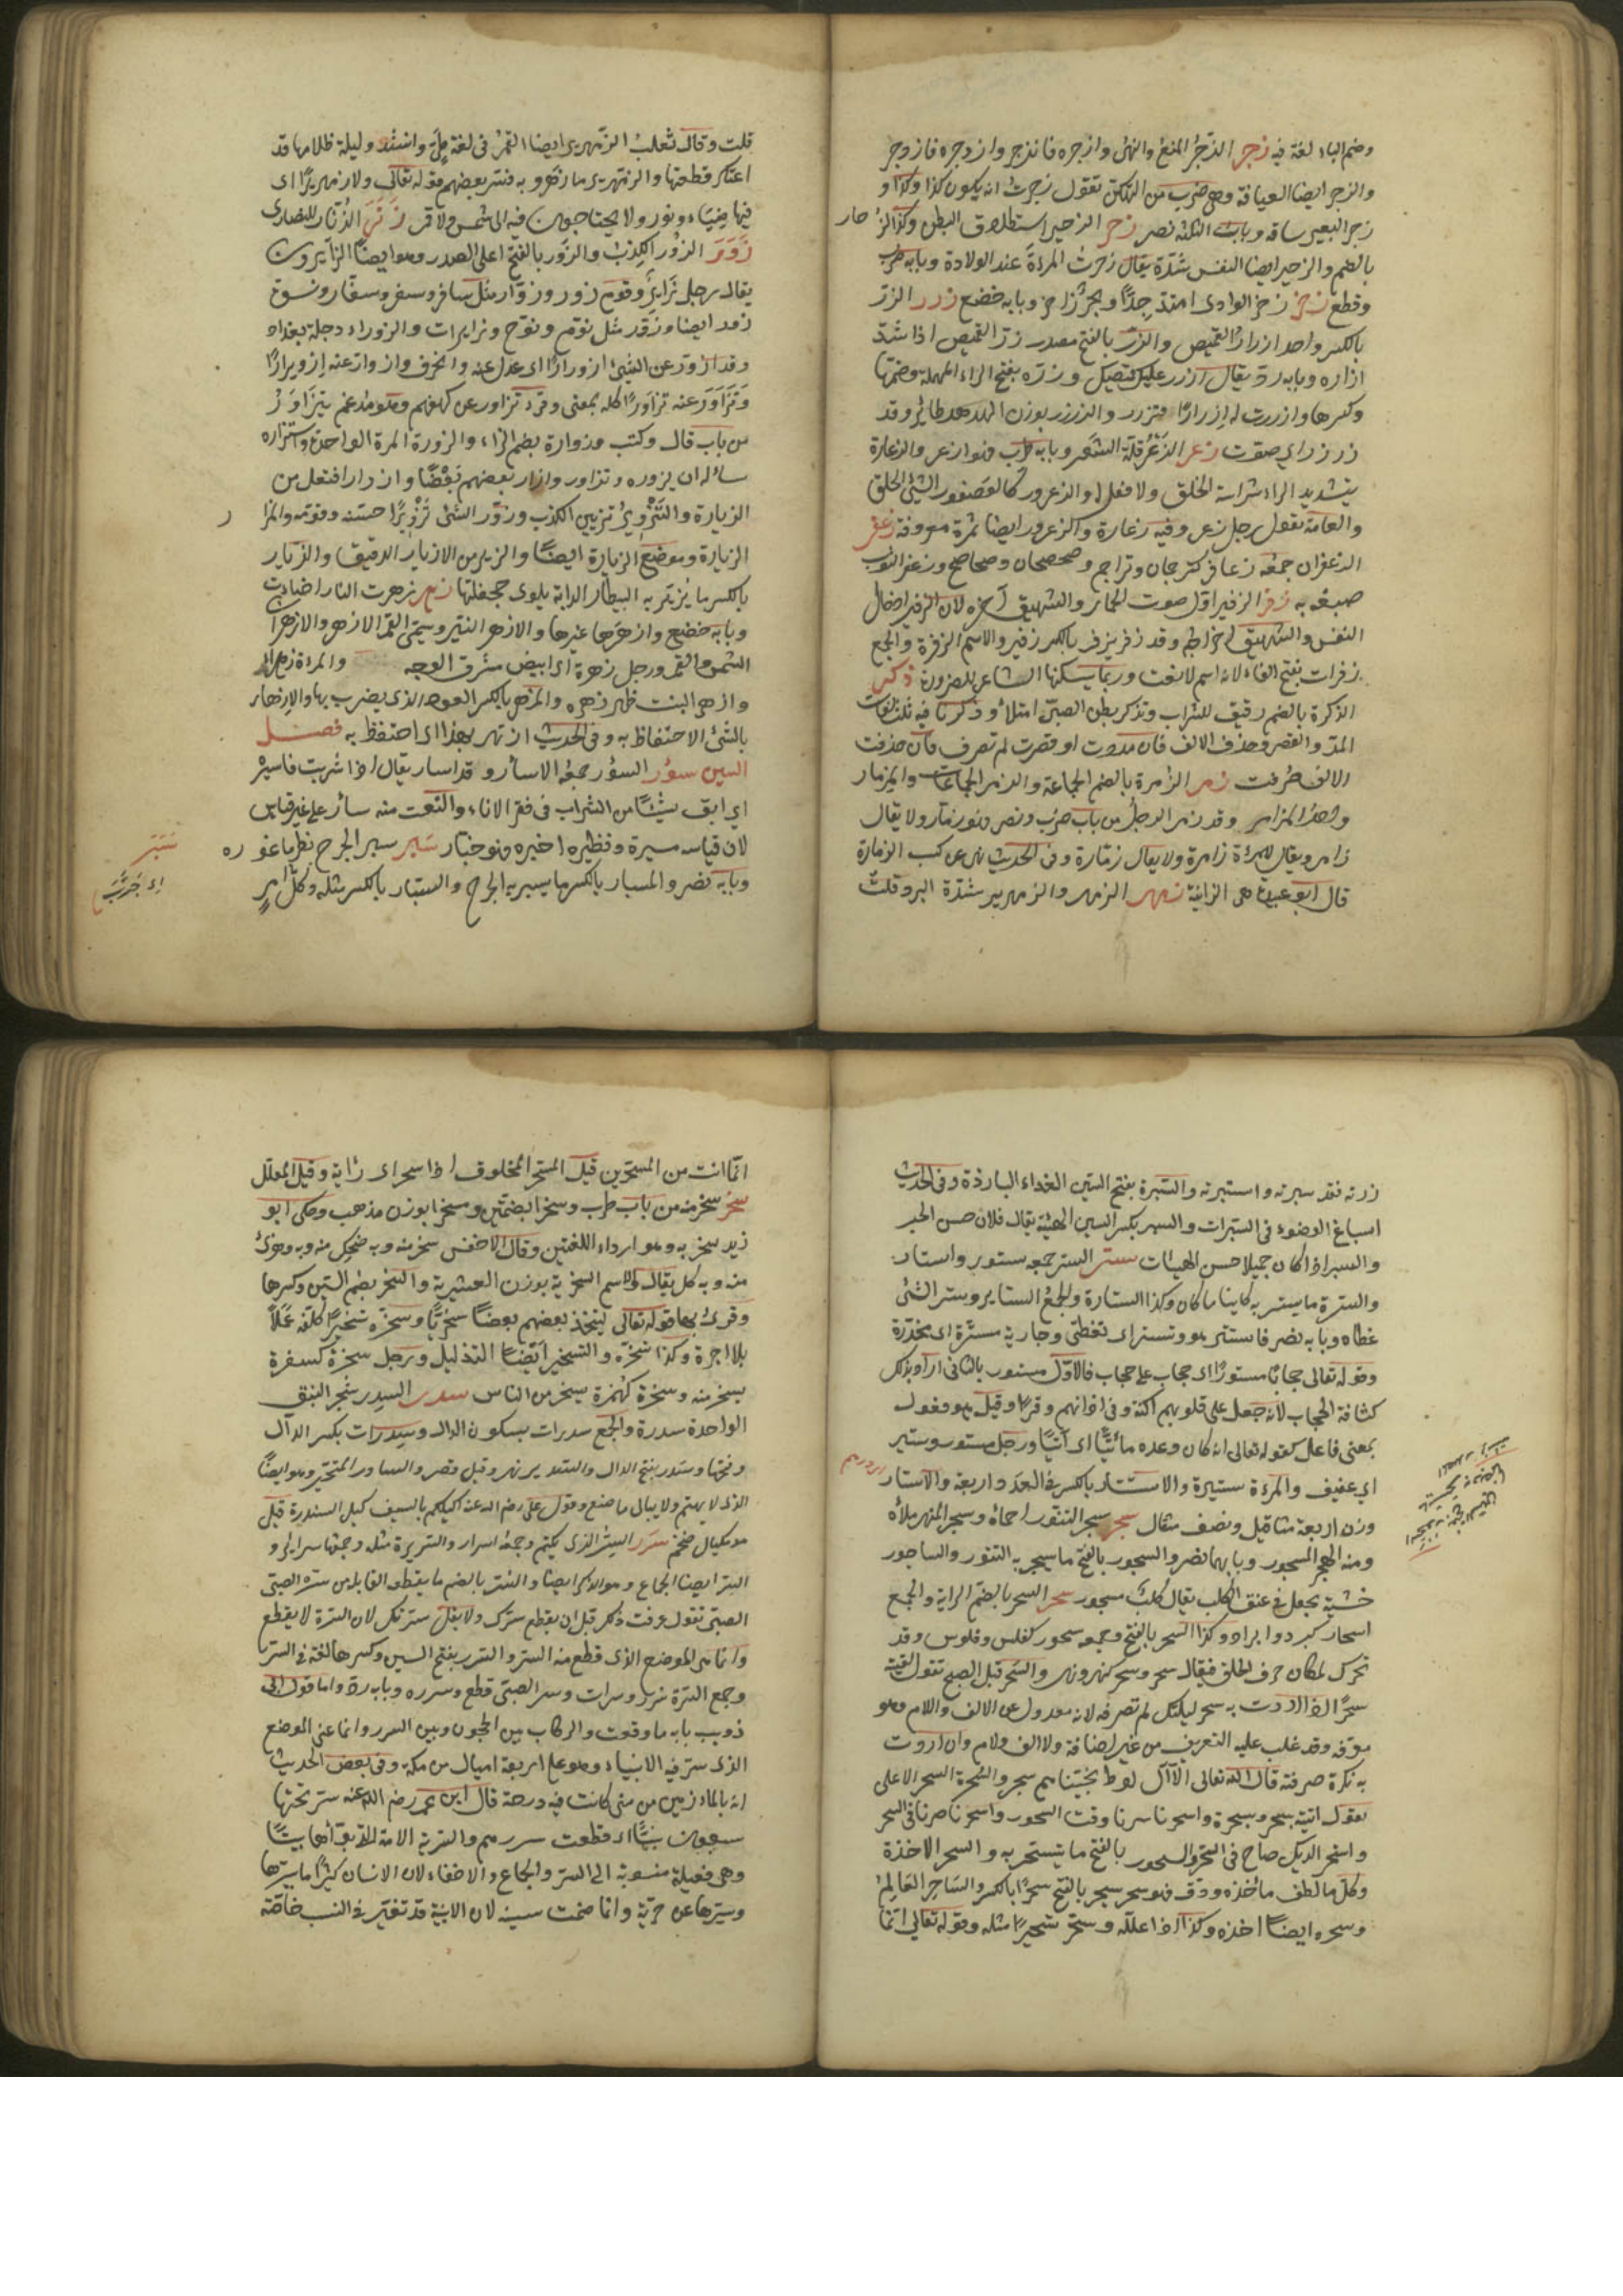 وضم الباء لغة فيه زجر الزجر المنع والنهى وازجره فانزجر وازدجره فازدجر
والزجر ايضا العيافة وهى ضرب من التكهن تقول زجرت انه يكون كذا وكذا و
زجر البعير ساقه وباب الثلثة نصر زحر الزحير استطلاق البطن وكذا الزحار
بالضم والزحير ايضا النفس بشدة يقال زحرت المرءة عند الولادة وبابه ضرب
وقطع زخر زخر الوادى امتد جدا وبحر زاخر وبابه خضع زرر الزر
بالكسر واحد ازرار القميص والزر بالفتح مصدر زر القميص اذا شد
ازاره وبابه رد يقال ازرر عليك قميصك وزره بفتح الراء المهملة وضمها
وكسرها وازررت له ازرارا فتزرر والزرزر بوزن الهدهد طائر وقد
زرزر اي صوت زعر الزعر قلة الشعر وبابه طرب فهو ازعر والزعارة
بتشديد الراء شراسة الخلق ولا فعل له والزعرور كالعصفور السيئ الخلق
والعامة تقول رجل زعر وفيه زعارة والزعرور ايضا ثمرة معروفة زعفر
الزعفران جمعه زعافر كترجمان وتراجم وصحصحان وصحاصح وزعفر الثوب
صبغه به زفر الزفير اول صوت الحمار والشهيق آخره لان الزفير ادخال
النفس والشهيق اخراجه وقد زفر يزفر بالكسر زفيرا والاسم الزفرة والجمع
زفرات بفتح الفاء لانه اسم لا نعت وربما يسكنها الشاعر للضرورة زكر
الزكرة بالضم زقيق للشراب وتزكر بطن الصبى امتلأ وزكريا فيه ثلث لغات
المد والقصر وحذف الالف فان مددت او قصرت لم تصرف فان حذفت
الالف صرفت زمر الزمرة بالضم الجماعة والزمر الجماعات والمزمار
واحد المزامير وقد زمر الرجل من باب ضرب ونصر فهو زمار ولا يقال
زامر ويقال للمرءة زامرة ولا يقال زمارة وفى الحديث نهى عن كسب الزمارة
قال ابو عبيدة هى الزانية زمهر الزمهر والزمهرير شدة البرد قلت
قلت وقال ثعلب الزمهرير ايضا القمر فى لغة طى وانشد وليلة ظلامها قد
اعتكر قطعتها والزمهرير ما زهر وبه فسر بعضهم قوله تعالى ولا زمهريرا اى
فيها ضياء ونور ولا يحتاجون فيه الى شمس ولا قمر زنر الزنار للنصارى
زور الزور الكذب والزور بالفتح اعلى الصدر وهو ايضا الزائرون
يقال رجل زائر وقوم زور وزوار مثل سافر وسفر وسفار ونسوة
زور ايضا وزور مثل نوم ونوح وزايرات والزوراء دجلة بغداد
وقد ازور عن الشيئ ازورارا اى عدل عنه وانحرف وازوار عنه ازويرارا
وتزاور عنه تزاورا كله بمعنى وقرئ تزاور عن كهفهم وهو مدغم تتزاور
من باب قال وكتب وزوارة بضم الزاء والزورة المرة الواحدة واستزاره
سأله ان يزوره وتزاور وازار بعضهم بعضا وازدار افتعل من
الزيارة والتزوير تزيين الكذب وزور الشئ تزويرا حسنه وقومه والمزار
الزيارة وموضع الزيارة ايضا والزير من الازيار الدقيق والزيار
بالكسر ما يزير به البيطار الدابة يلوى جحفلتها زهر زهرت النار اضاءت
وبابه خضع وازهرها غيرها والازهر النير ويسمى القمر الازهر والازهران
الشمس والقمر ورجل زهرة اى ابيض مشرق الوجه والمراة زهراء
وازهر النبت ظهر زهره والمزهر بالكسر العود الذى يضرب بها والازدهار
بالشئ الاحتفاظ به وفى الحديث ازدهر بهذا اى احتفظ به فصل
السين سؤر السؤر جمعه الاسآر وقد اسار يقال اذا شربت فاسئر
اي ابق شيئا من الشراب فى قعر الاناء والنعت منه سأر على غير قياس
لان قياسه مسيرة ونظيره اخبره فهو خبار سبر سبر الجرح نظر ما غوره
وبابه نصر والمسبار بالكسر ما يسبر به الجرح والسبار بالكسر مثله وكل امر
سبر
اى جرب
رزته فقد سبرته واستبرته والسبرة بفتح السين الغداة الباردة وفى الحديث
اسباغ الوضوء فى السبرات والسبر بكسر السين الهيئة يقال فلان حسن الحبر
والسبر اذا كان جميلا حسن الهيئات ستر الستر جمعه ستور واستار
والسترة ما يستر به كاينا ما كان وكذا الستارة والجمع الستاير وستر الشئ
غطاه وبابه نصر فاستتر هو وتستر اى تغطى وجارية مسترة اى مخدرة
وقوله تعالى حجابا مستورا اى حجاب على حجاب فالاول مستور بالثانى اراد بذلك
كثافة الحجاب لانه جعل على قلوبهم اكنة وفى اذانهم وقرا وقيل هو مفعول
بمعنى فاعل كقوله تعالى انه كان وعده مأتيا اى آتيا ورجل مستور وستير
اي عفيف والمرءة ستيرة والاستار بالكسر فى العدد اربعة والاستار
وزن اربعة مثاقيل ونصف مثقال سجر سجر التنور احماه وسجر النهر ملأه
ومنه البحر المسجور وبابهما نصر والسجور بالفتح ما يسجر به التنور والساجور
خشبة يجعل فى عنق الكلب يقال كلب مسجور سحر السحر بالضم الراية والجمع
اسحار كبرد وابراد وكذا السحر بالفتح وجمعه سحور كفلس وفلوس وقد
تحرك لمكان حرف الحلق فيقال سحر وسحر كنهر ونهر والسحر قبل الصبح تقول لقيته
سحرا اذا اردت به سحر ليلتك لم تصرفه لانه معدول عن الالف واللام وهو
معرفة وقد غلب عليه التعريف من غير اضافة ولا الف ولام وان اردت
به نكرة صرفته قال الله تعالى الا آل لوط نجيناهم بسحر والسحرة السحر الاعلى
تقول اتيته بسحر وبسحرة واسحرنا سرنا وقت السحور واسحرنا صرنا فى السحر
واستحر الديك صاح فى السحر والسحور بالفتح ما يتسحر به والسحر الاخذة
وكل ما لطف مأخذه ودق فهو سحر سحر بالفتح سحرا بالكسر والساحر العالم
وسحره ايضا اخذه وكذا اذا علله وسحر تسحيرا مثله وقوله تعالى انما
انما انت من المسحرين قيل المسحر المخلوق اذا سحر اى رئة وقيل المعلل
سخر سخر منه من باب طرب وسخرا بضمتين ومسخرا بوزن مذهب وحكى ابو
زيد سخر به وهو ارداء اللغتين وقال الاخفش سخر منه وبه وضحك منه وبه وهزئ
منه وبه كل يقال والاسم السخرية بوزن العشيرية والسخر بضم السين وكسرها
وقرئ بها قوله تعالى ليتخذ بعضهم بعضا سخريا وسخره تسخيرا كلفه عملا
بلا اجرة وكذا تسخره والتسخير ايضا التذليل ورجل سخرة كسفرة
يسخر منه وسخرة كهمزة يسخر من الناس سدر السدر شجر النبق
الواحدة سدرة والجمع سدرات بسكون الدال وسدرات بكسر الدال
وفتحها وسدر بفتح الدال والسدير نهر وقيل قصر والسادر المتحير وهو ايضا
الذى لا يهتم ولا يبالى ما صنع وقول على رضى الله عنه اكيلكم بالسيف كيل السندرة قيل
هو مكيال ضخم سرر السر الذى يكتم وجمعه اسرار والسريرة مثله وجمعها سراير و
السر ايضا الجماع وهو الذكر ايضا والسر بالضم ما يقطعه القابلة من سرة الصبى
الصبى تقول عرفت ذلك قبل ان يقطع سرك ولا يقل سرتك لان السرة لا يقطع
وانما هى الموضع الذى قطع منه السر والسرر بفتح السين وكسرها لغة فى السر
وجمع السرة سرر وسرات وسر الصبى قطع وسرره وبابه رد واما قول ابى
ذويب بابه ما وقفت والركاب بين الحجون وبين السرر وانما عنى الموضع
الذى سر فيه الانبياء وهو على اربعة اميال من مكة وفى بعض الحديث
انه بالمازمين من منى كانت فيه دوحة قال ابن عمر رضى الله عنه سر تحتها
سبعون نبيا اى قطعت سررهم والسرية الامة التى بوأتها بيتا
وهى فعيلة منسوبة الى السر والجماع والاخفاء لان الانسان كثيرا ما يسرها
ويسترها عن حرته وانما ضمت سينه لان الابنية قد تغير فى النسب خاصة